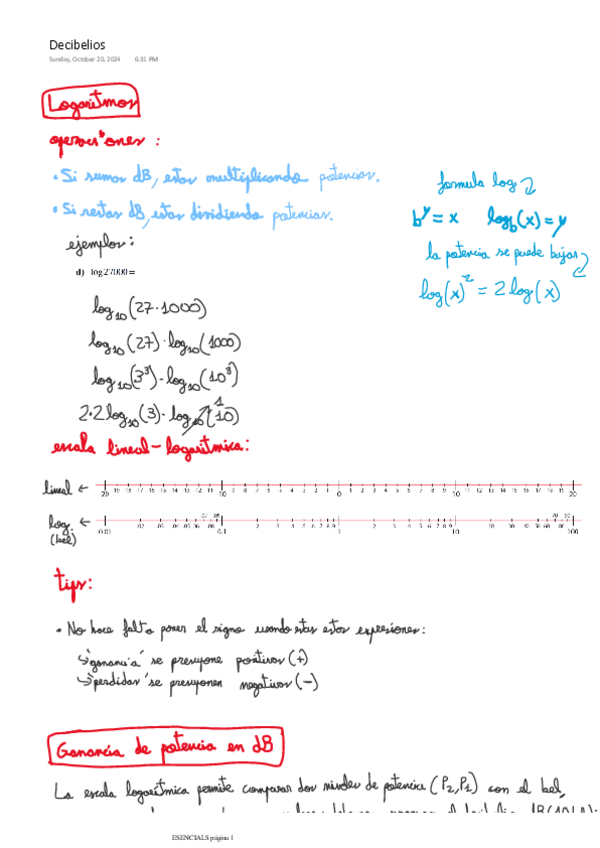 Decibelios
Sunday, October 20, 2024 6:31 PM
Logaritmos
operaciones:
• Si sumas dB, estas multiplicando potencias.
• Si restas dB, estas dividiendo potencias.
formula log
b^y = x log_b(x) = y
la potencia se puede bajar
log(x)^2 = 2 log(x)
ejemplos:
d) log 27000 =
log_10(27·1000)
log_10(27)·log_10(1000)
log_10(3^3)·log_10(10^3)
2·2 log_10(3)·log_10(10) 1
escala lineal-logaritmica:
lineal ←
20 19 18 17 16 15 14 13 12 11 10 9 8 7 6 5 4 3 2 1 0 1 2 3 4 5 6 7 8 9 10 11 12 13 14 15 16 17 18 19 20
log. ←
(bel)
0.01 .02 .03 .04 .05 .06 .08 0.1 .2 .3 .4 .5 .6 .7 .8 1 2 3 4 5 6 7 8 9 10 20 30 40 50 60 80 100
tips:
• No hace falta poner el signo usando estas expresiones:
↳ 'ganancia' se presupone positivos (+)
↳ 'perdidas' se presuponen negativos (-)
Ganancia de potencia en dB
La escala logaritmica permite comparar dos niveles de potencia (P2,P1) con el bel,
ESENCIALS página 1